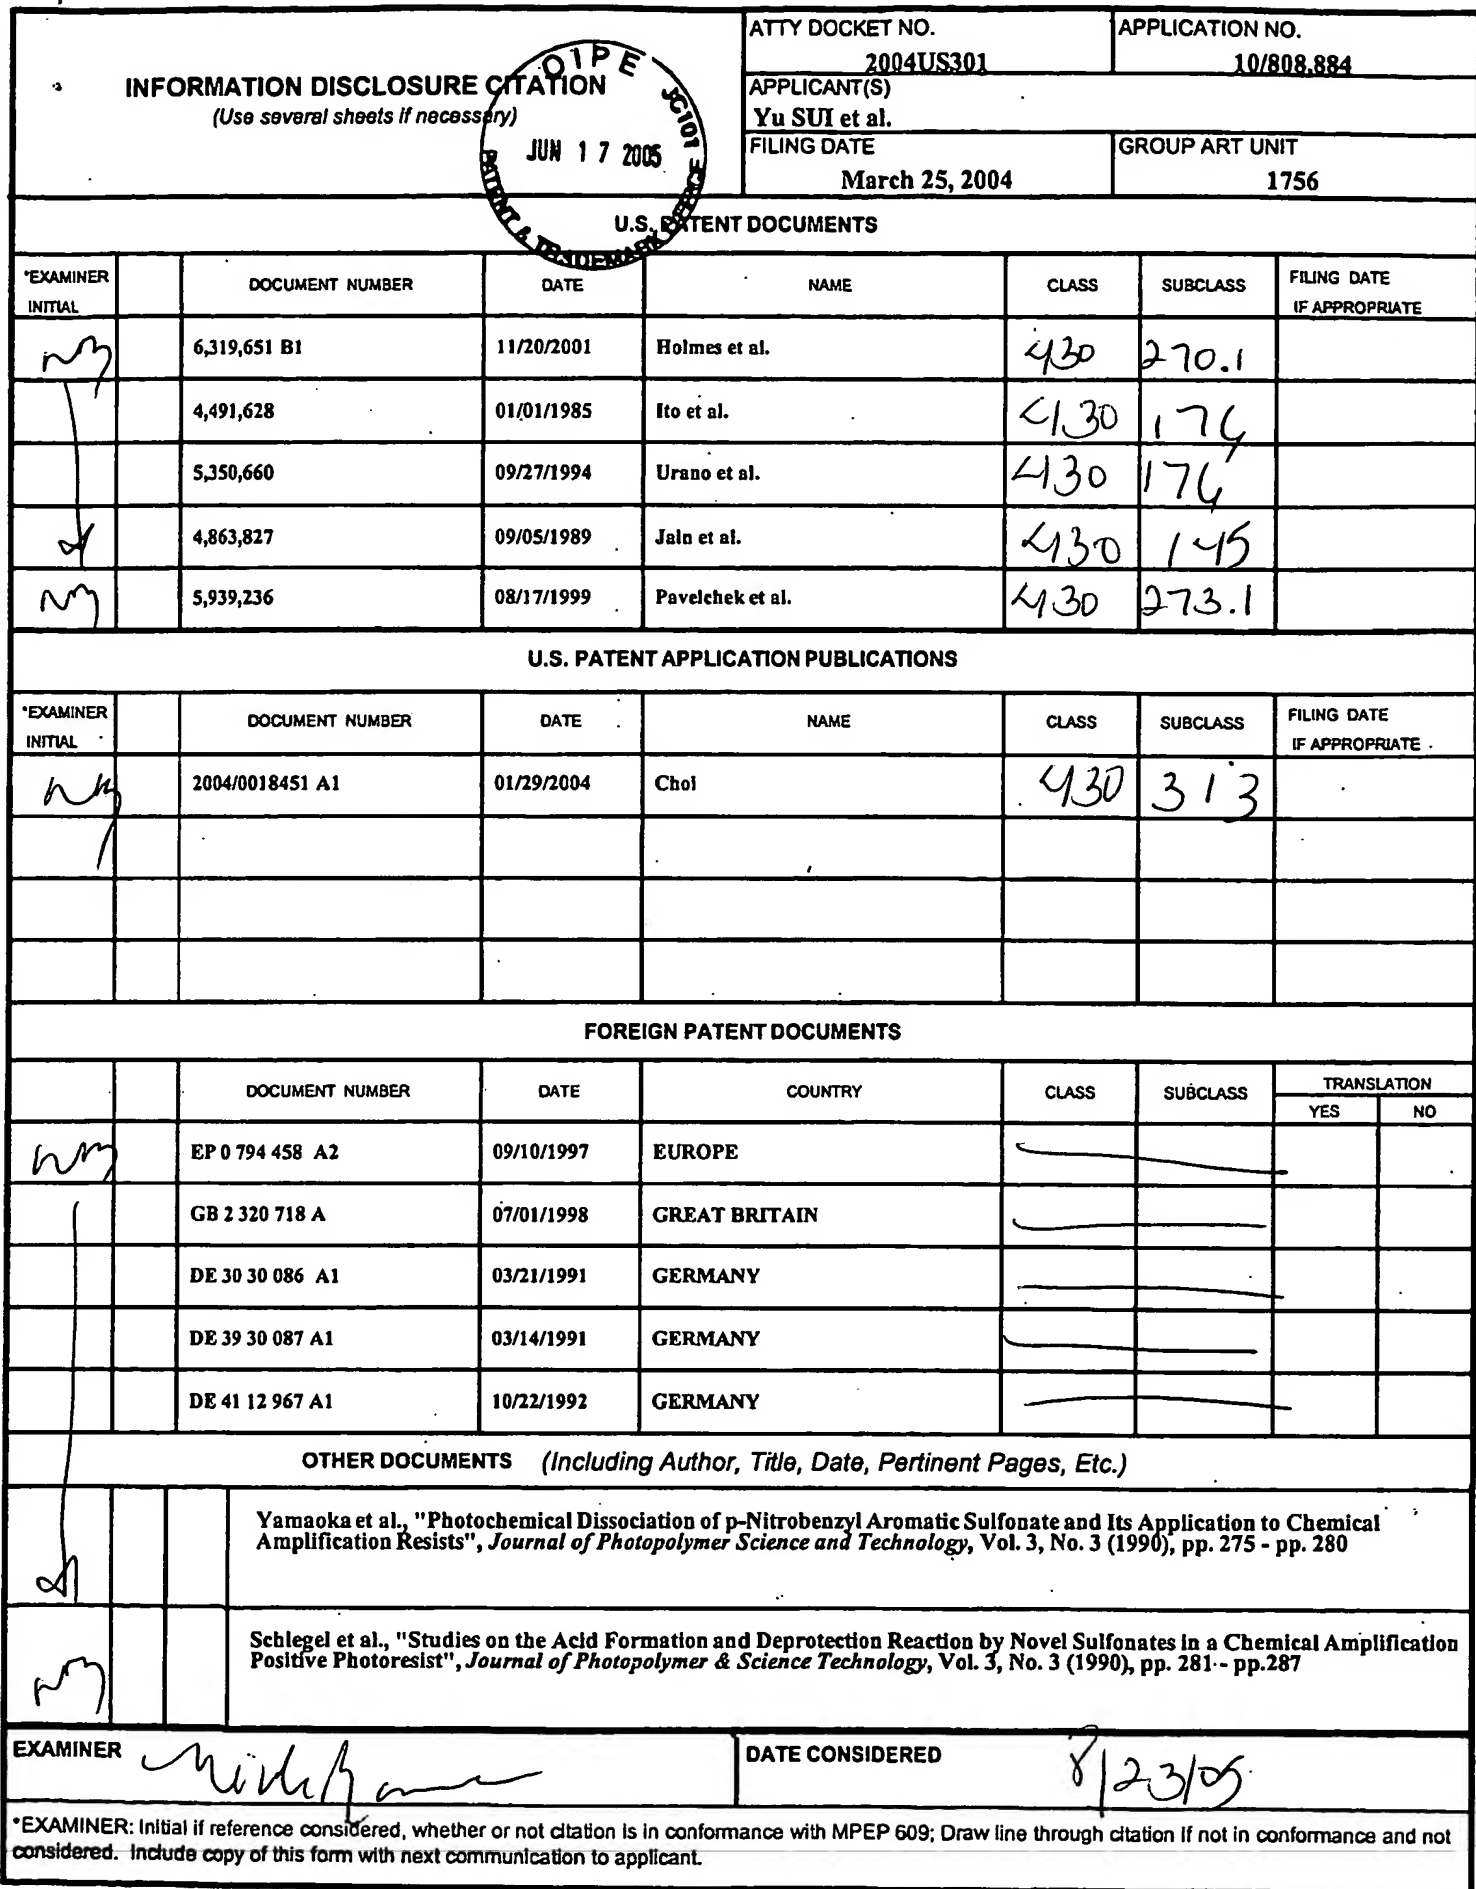 ATTY DOCKET NO.
2004US301
APPLICATION NO.
10/808,884
INFORMATION DISCLOSURE CITATION
(Use several sheets if necessary)
OIPE JC101
JUN 17 2005
PATENT & TRADEMARK
APPLICANT(S)
Yu SUI et al.
FILING DATE
March 25, 2004
GROUP ART UNIT
1756
U.S. PATENT DOCUMENTS
*EXAMINER INITIAL DOCUMENT NUMBER DATE NAME CLASS SUBCLASS FILING DATE IF APPROPRIATE
6,319,651 B1 11/20/2001 Holmes et al. 430 270.1
4,491,628 01/01/1985 Ito et al. 430 176
5,350,660 09/27/1994 Urano et al. 430 176
4,863,827 09/05/1989 Jain et al. 430 145
5,939,236 08/17/1999 Pavelchek et al. 430 273.1
U.S. PATENT APPLICATION PUBLICATIONS
*EXAMINER INITIAL DOCUMENT NUMBER DATE NAME CLASS SUBCLASS FILING DATE IF APPROPRIATE
2004/0018451 A1 01/29/2004 Choi 430 313
FOREIGN PATENT DOCUMENTS
DOCUMENT NUMBER DATE COUNTRY CLASS SUBCLASS TRANSLATION
YES NO
EP 0 794 458 A2 09/10/1997 EUROPE
GB 2 320 718 A 07/01/1998 GREAT BRITAIN
DE 30 30 086 A1 03/21/1991 GERMANY
DE 39 30 087 A1 03/14/1991 GERMANY
DE 41 12 967 A1 10/22/1992 GERMANY
OTHER DOCUMENTS (Including Author, Title, Date, Pertinent Pages, Etc.)
Yamaoka et al., "Photochemical Dissociation of p-Nitrobenzyl Aromatic Sulfonate and Its Application to Chemical
Amplification Resists", Journal of Photopolymer Science and Technology, Vol. 3, No. 3 (1990), pp. 275 - pp. 280
Schlegel et al., "Studies on the Acid Formation and Deprotection Reaction by Novel Sulfonates in a Chemical Amplification
Positive Photoresist", Journal of Photopolymer & Science Technology, Vol. 3, No. 3 (1990), pp. 281 - pp.287
EXAMINER
DATE CONSIDERED 8/23/05
*EXAMINER: Initial if reference considered, whether or not citation is in conformance with MPEP 609; Draw line through citation if not in conformance and not
considered. Include copy of this form with next communication to applicant.